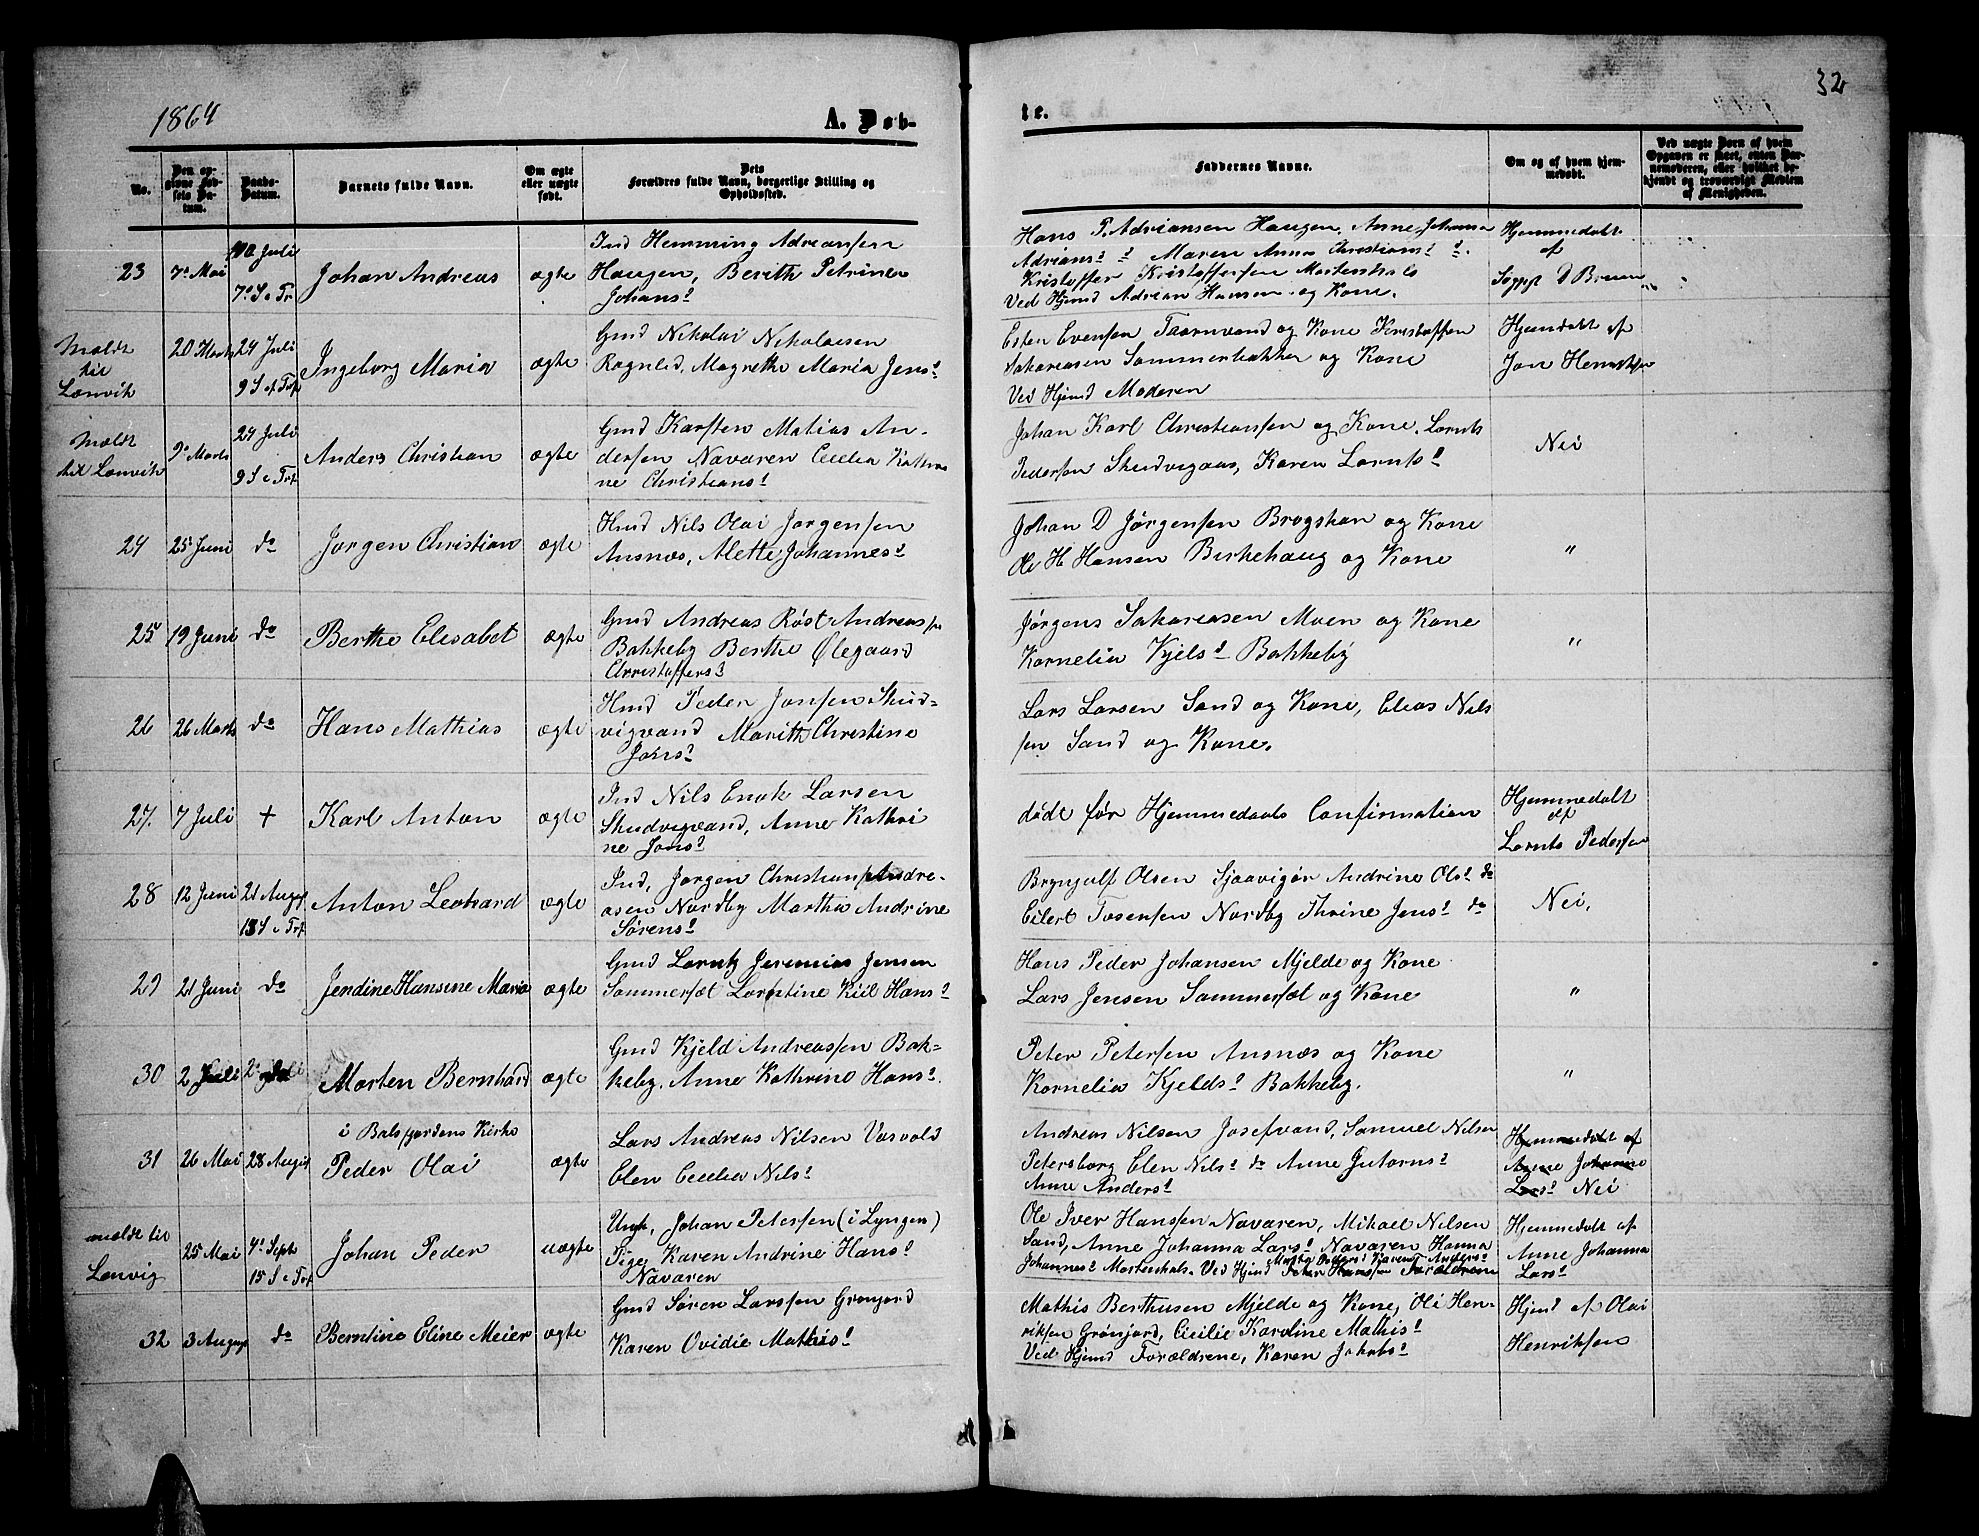 1864
A. Døb-
te.
32
No.
Den op-
givne Fød-
sels Da-
tum.
Daabs-
Datum.
Barnets fulde Navn.
Om ægte
eller uægte
født.
Dets
Forældres fulde Navn, borgerlige Stilling og
Opholdssted.
Faddernes Navne.
Om og af hvem hjem-
medøbt.
Ved uægte Børn af hvem
Opgaven er skeet, enten Bar-
nemoderen, eller hvilket be-
kjendt og troværdigt Medlem
af Menigheden.
23
7de Mai
10 Juli
7de S e Tr
Johan Andreas
ægte
Ind Hemming Adriansen
Haugen, Berith Petrine
Johansd
Hans P. Adriansen Haugen, Anne Johanna
Adriansd d Maren Anna Christiansd d.
Kristoffer Kristoffersen Mortenhals
Ved Hjemd Adrian Hansen og Kone.
Hjemmedøbt
af
Sogpr D Bruun
Meldt
til
Lenvik
20 Marts
24 Juli
9 S ef Trf
Ingeborg Maria
ægte
Gmd Nikolai Nikolaisen
Rognlid, Magrethe Maria Jensd
Esten Evensen Taarnvand og Kone Kristoffer
Sakariasen Sommerbakken og Kone
Ved Hjemd Moderen
Hjemdøbt af
Jon Henriksen
Meldt
til Lenvik
9de Marts
24 Juli
9 S e Trf
Anders Christian
ægte
Gmd Karsten Matias An-
dersen Navaren Cecilia Kathri
ne Christiansd
Johan Karl Christiansen og Kone. Lornts
Pedersen Skudvigaas, Karen Lorntsd
Nei
24
25 Juni
do
Jørgen Christian
ægte
Hmd Nils Olai Jørgensen
Ansnæs, Alette Johannesd
Johan D Jørgensen Brogskar og Kone
Ole H Hansen Birkehaug og Kone
"
25
19 Juni
do
Berthe Elisabet
ægte
Gmd Andreas Røst Andreassen
Bakkeby Berthe Ølegaard
Christoffersd
Jørgens Sakariasen Moen og Kone
Kornelia Kjelsd Bakkeby
"
26
26 Marts
do
Hans Mathias
ægte
Hmd Peder Jonsen Skud-
vigvand Marith Christine
Jonsd
Lars Larsen Sand og Kone, Elias Nils
sen Sand og Kone.
27.
7 Juli
+
Karl Anton
ægte
Ind Nils Enok Larsen
Skudvigvand, Anne Kathri
ne Jonsd
døde før Hjemmedaabs Confirmation
Hjemmedøbt
af
Lornts Pedersen
28
12 Juni
21 August
13 S e Trf
Anton Leohard
ægte
Ind, Jørgen Christian Andre-
asen Nordby Martha Andrine
Sørensd
Brynjulf Olsen Sjaavigør Andrine Olsd do
Eilert Tosensen Nordby Thrine Jensd do
Nei.
29
21 Juni
do
Jendine Hansine Maria
ægte
Gmd Lorntz Jeremias Jensen
Sommersæt Lorntine Kiil Hansd
Hans Peder Johansen Mjelde og Kone
Lars Jensen Sommersæt og Kone
"
30
2 Juli
Morten Bernhard
ægte
Gmd Kjeld Andreassen Bak-
keby, Anne Kathrine Hansd.
Peter Petersen Ansnæs og Kone
Kornelia Kjeldsd Bakkeby.
"
31
26 Mai
28 August
i Balsfjordens Kirke
Peder Olai
ægte
Lars Andreas Nilsen Vasvold
Elen Cecilia Nilsd
Andreas Nilsen Josefvand, Samuel Nilsen
Petersborg Elen Nilsd do Anne Gutormsd
Anne Andersd
Hjemmedøbt af
Anne Johanne
Larsd Nei
meldt til
Lenvig
25 Mai
4de Septe
15 S e Trf
Johan Peder
uægte
Ungk. Johan Petersen (i Lyngen)
Pige Karen Andrine Hansd
Navaren
Ole Iver Hanssen Navaren, Mikael Nilsen
Sand, Anne Johanna Larsd Navaren Hanna
Johannesd Mortenhals. Ved Hjemd Peter Hanssen Forældrene
Hjemmedøbt af
Anne Johanna
Larsd
32
3 August
do
Berntine Eline Meier
ægte
Gmd Søren Larssen Grønjord
Karen Ovidie Mathisd
Mathis Berthusen Mjelde og Kone, Ole Hen-
riksen Grønjord, Cicilie Karoline Mathisd
Ved Hjemd Forældrene, Karen Jakobsd
Hjemd af Olai
Henriksen